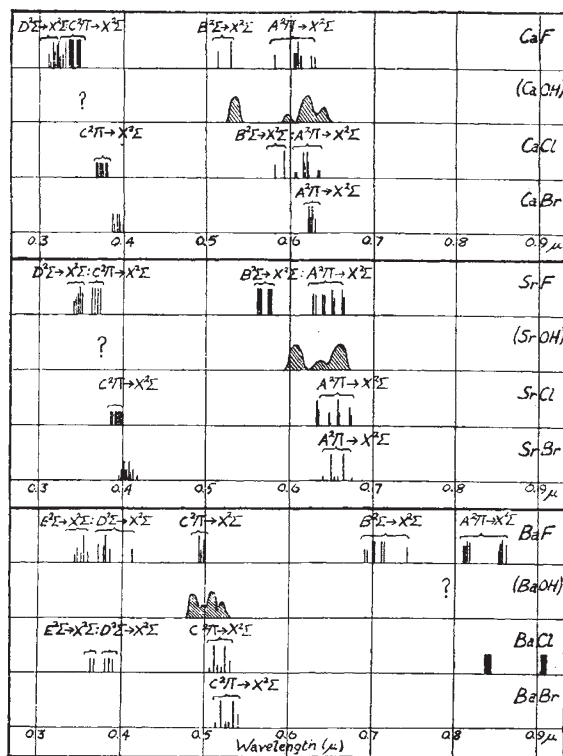 D²Σ→X²Σ C²Π→X²Σ B²Σ→X²Σ A²Π→X²Σ CaF
? (CaOH)
C²Π→X²Σ B²Σ→X²Σ : A²Π→X²Σ CaCl
A²Π→X²Σ CaBr
0.3 0.4 0.5 0.6 0.7 0.8 0.9 μ
D²Σ→X²Σ : C²Π→X²Σ B²Σ→X²Σ : A²Π→X²Σ SrF
? (SrOH)
C²Π→X²Σ A²Π→X²Σ SrCl
A²Π→X²Σ SrBr
0.3 0.4 0.5 0.6 0.7 0.8 0.9 μ
E²Σ→X²Σ : D²Σ→X²Σ C²Π→X²Σ B²Σ→X²Σ A²Π→X²Σ BaF
? (BaOH)
E²Σ→X²Σ : D²Σ→X²Σ C²Π→X²Σ BaCl
C²Π→X²Σ BaBr
0.3 0.4 0.5 0.6 0.7 0.8 0.9 μ
Wavelength (μ)